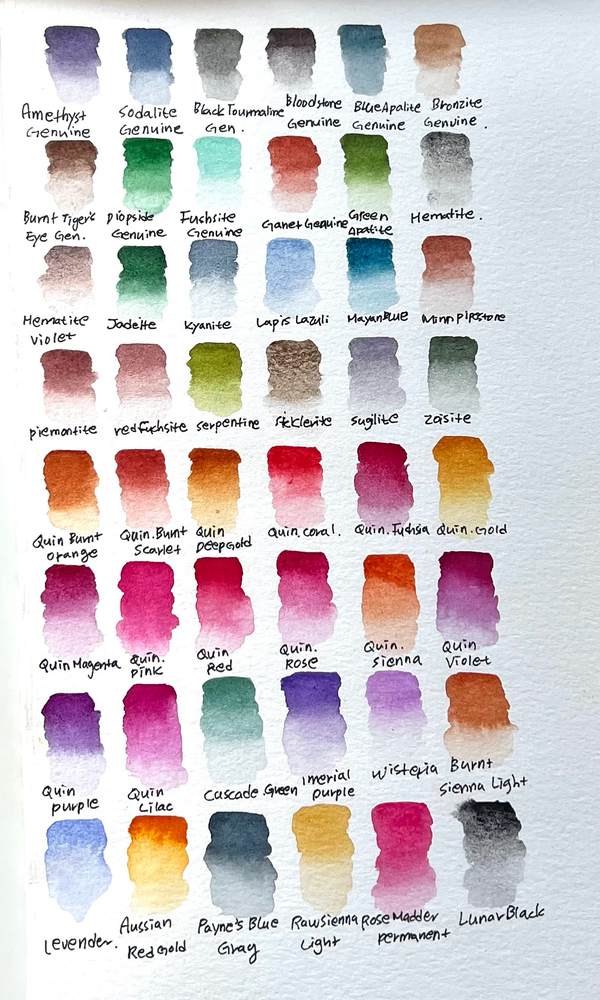 Amethyst Genuine
Sodalite Genuine
Black Tourmaline Gen.
Bloodstone Genuine
Blue Apatite Genuine
Bronzite Genuine.
Burnt Tiger's Eye Gen.
Diopside Genuine
Fuchsite Genuine
Ganet Genuine
Green Apatite
Hematite.
Hematite Violet
Jadeite
Kyanite
Lapis Lazuli
Mayan Blue
Minn Pipstore
piemontite
red fuchsite
serpentine
Sicklerite
Sugilite
Zoisite
Quin Burnt orange
Quin. Burnt Scarlet
Quin DeepGold
Quin. coral.
Quin. Fuchsia
Quin. Gold
Quin Magenta
Quin. Pink
Quin Red
Quin. Rose
Quin. Sienna
Quin Violet
Quin purple
Quin Lilac
Cuscade Green
Imerial purple
Wisteria
Burnt Sienna Light
Levender.
Aussian Red Gold
Payne's Blue Gray
Raw Sienna Light
Rose Madder permanent
Lunar Black